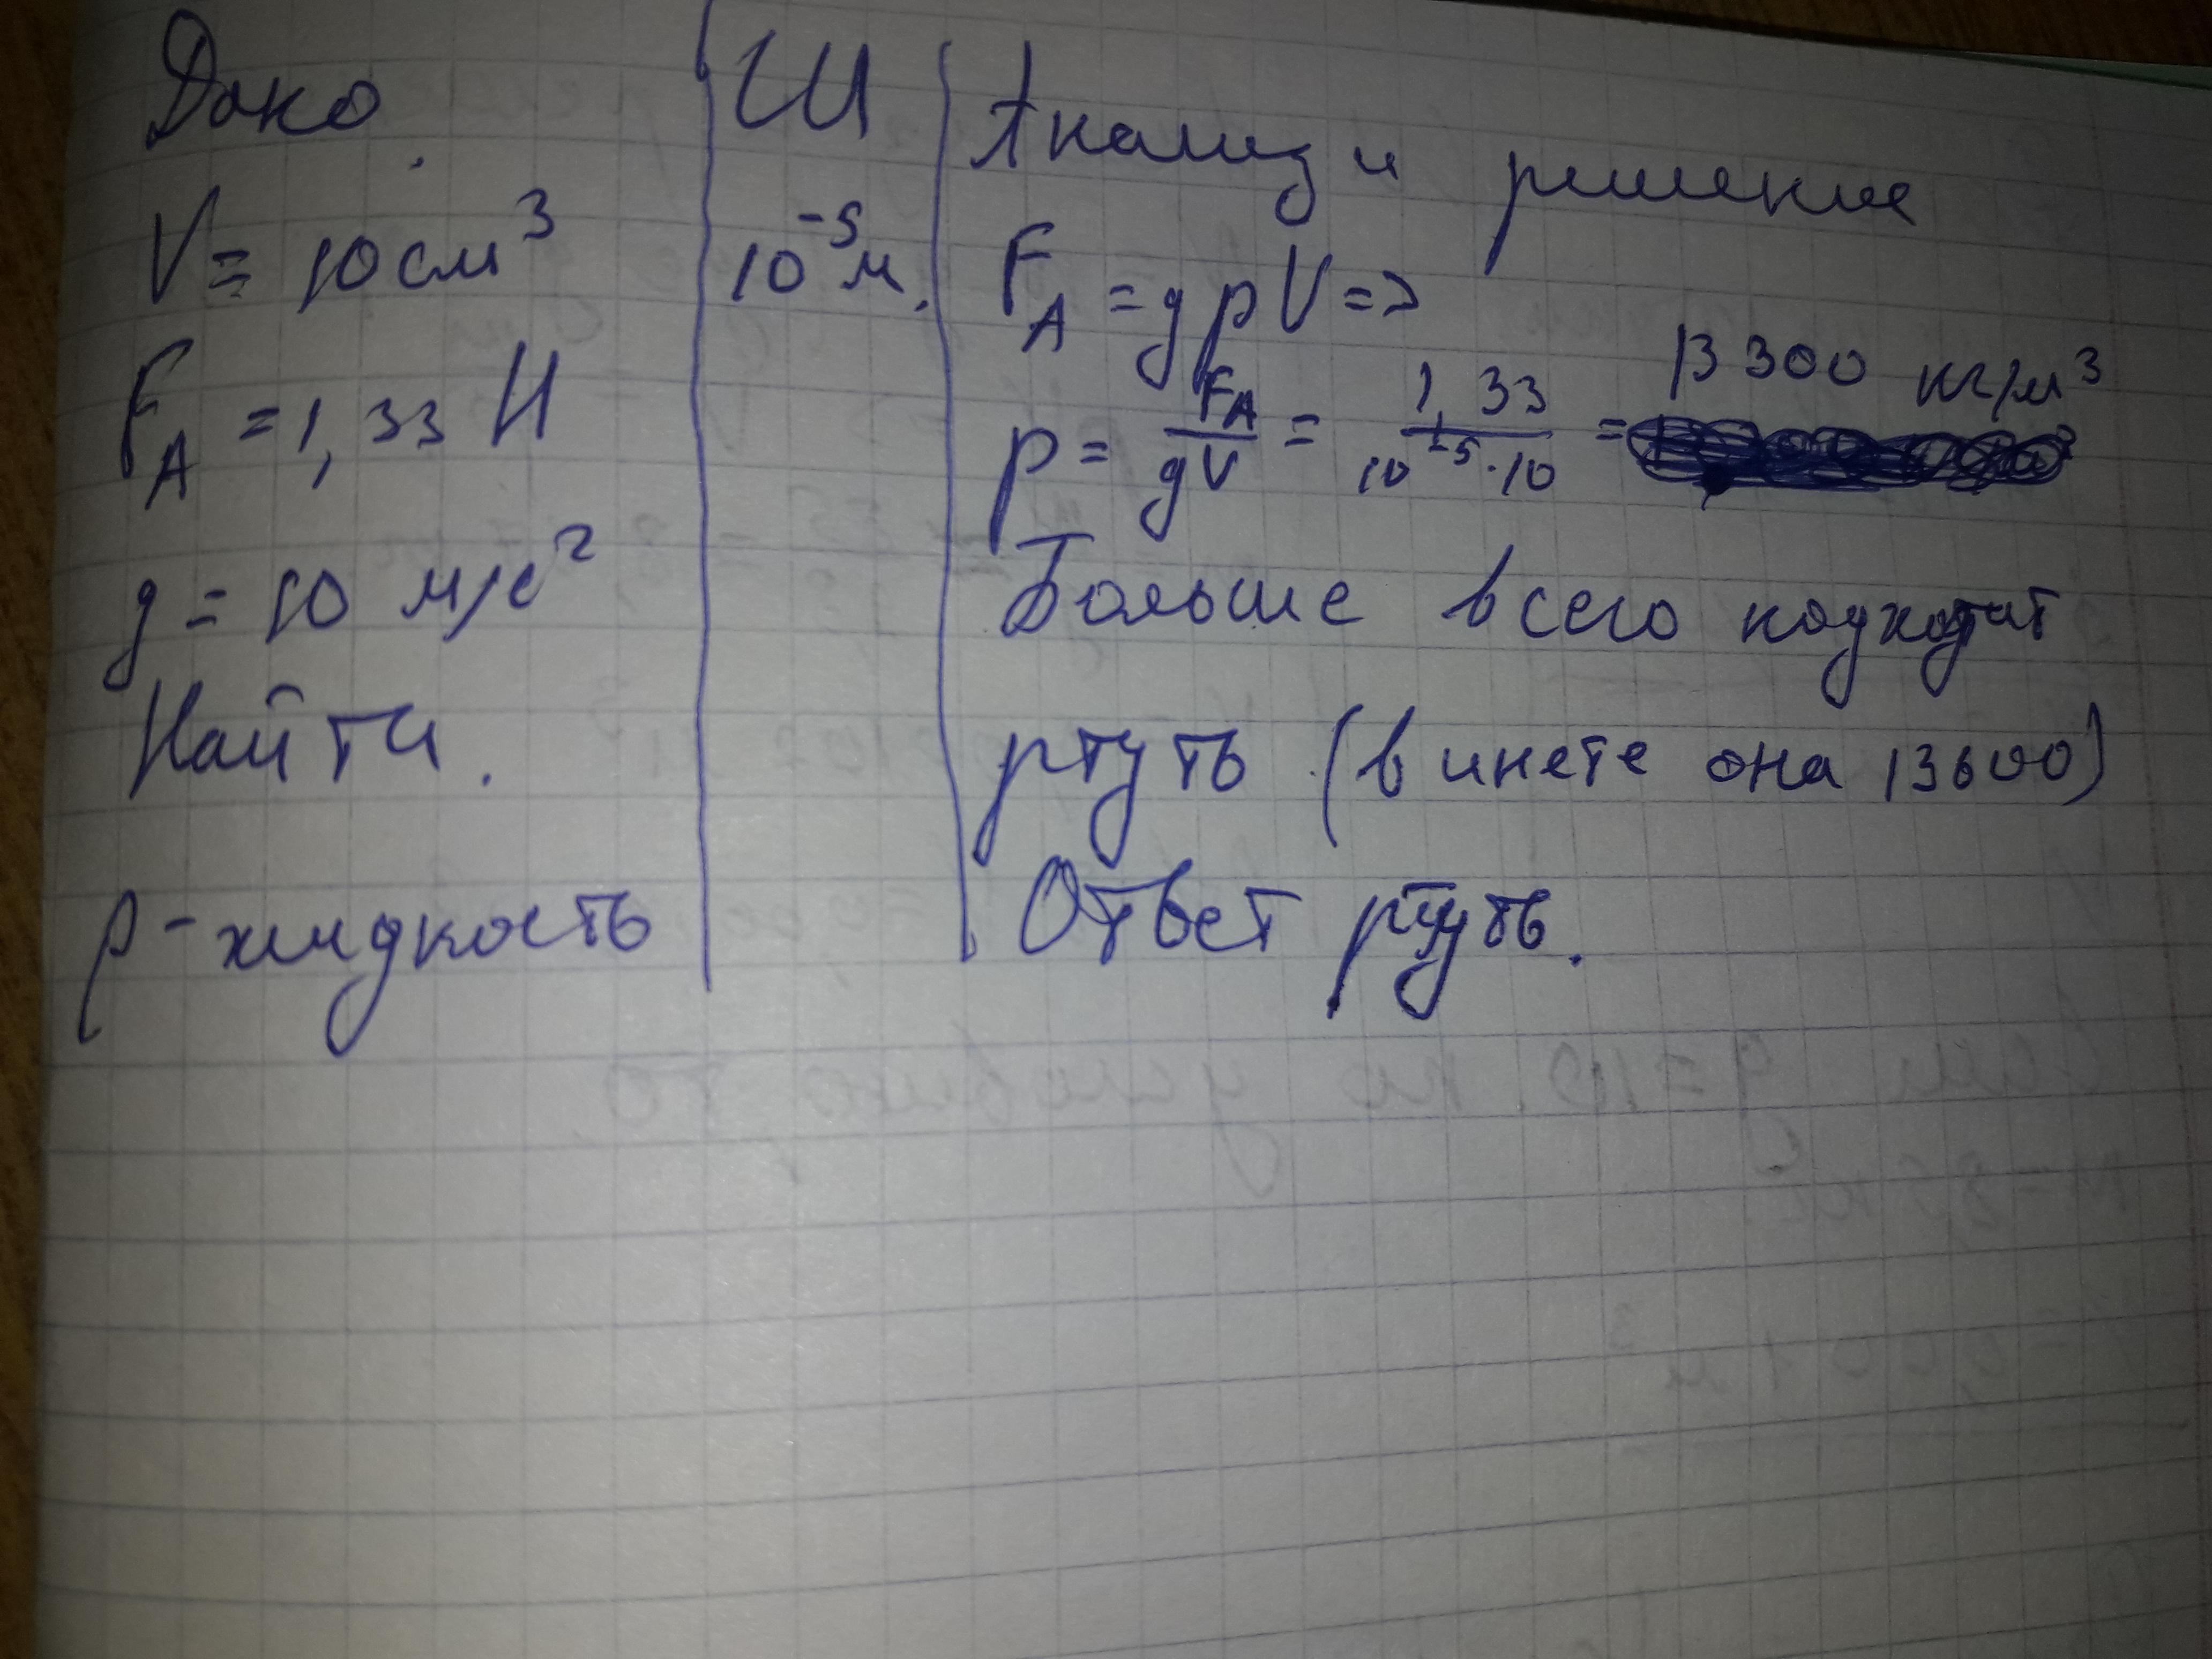 Дано.
V = 10 см³
F_A = 1,33 Н
g = 10 м/с²
Найти.
ρ - жидкость
СИ
10⁻⁵ м.
Анализ и решение
F_A = gρV =>
ρ = F_A/gV = 1,33/10⁻⁵·10 = 13300 кг/м³
Больше всего подходит
ртуть (в инете она 13600)
Ответ ртуть.